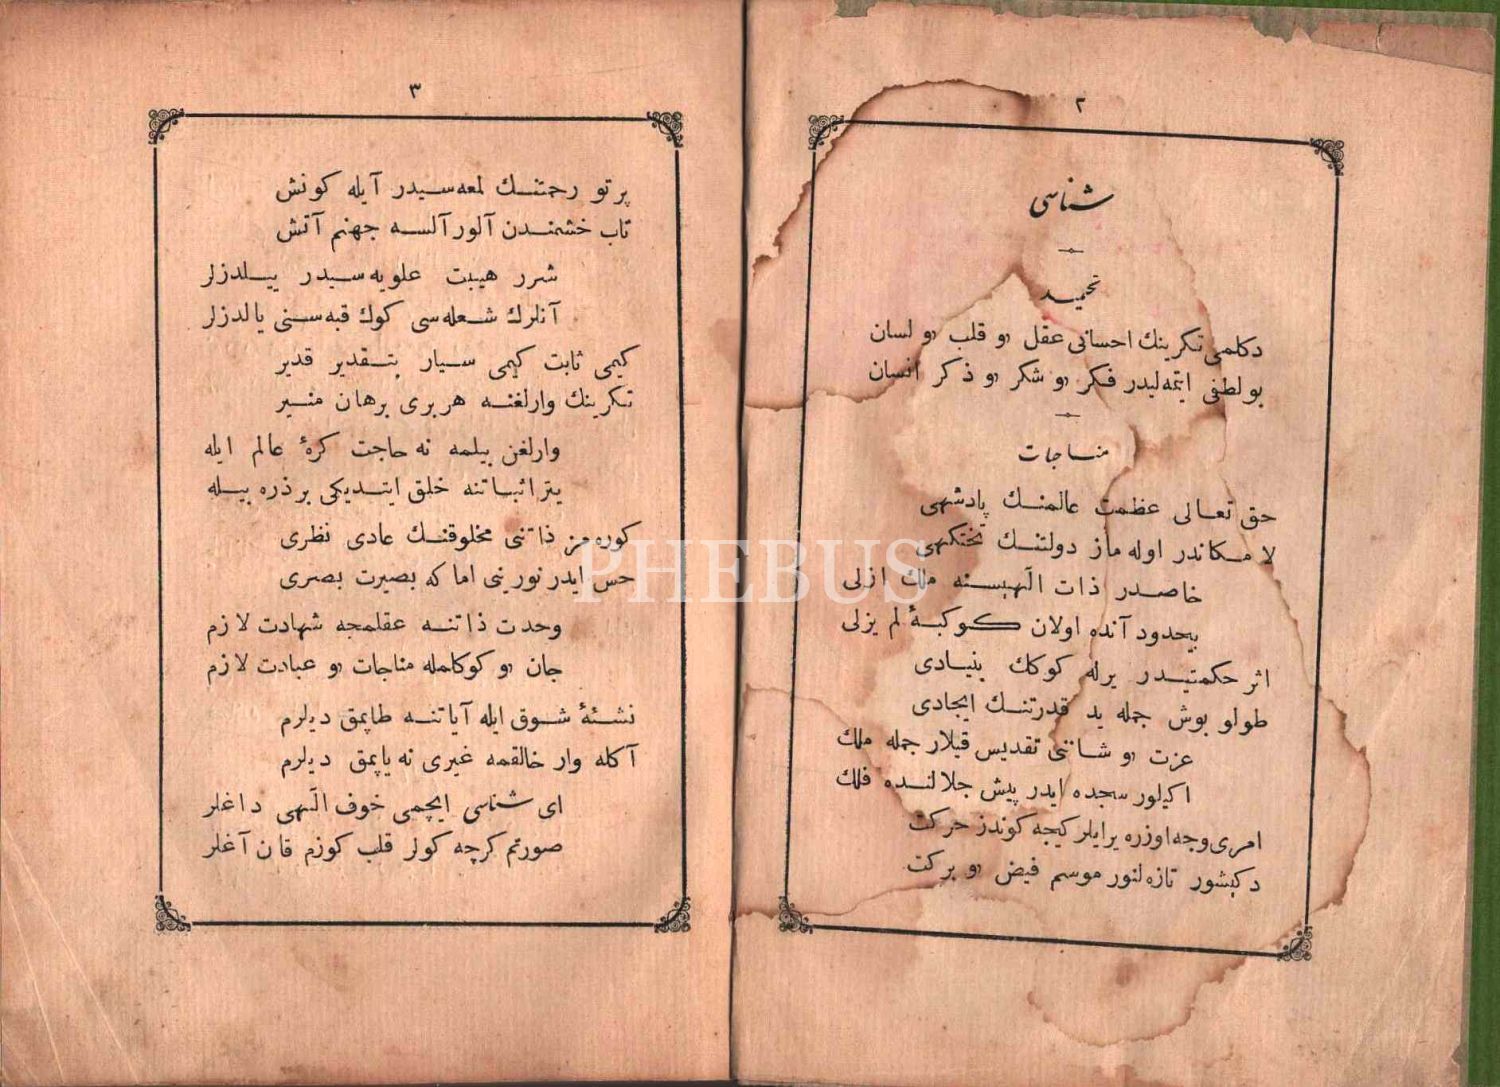 ٢
شناسی
تحمید
دكلمی تكرینك احسانی عقل و قلب و لسان
بو لطفی ایتمه‌لیدر فكر و شكر و ذكر انسان
مناجات
حق تعالی عظمت عالمنك پادشهی
لا مكاندر اوله‌ماز دولتنك تختكهی
خاصدر ذات الٓهیسنه ملك ازلی
بیحدود آنده اولان كوكبهٔ لم یزلی
اثر حكمتیدر یرله كوكك بنیادی
طولو بوش جمله ید قدرتنك ایجادی
عزت و شاننی تقدیس قیلار جمله ملك
اكیلور سجده ایدر پیش جلالنده فلك
امری وجه اوزره یر ایلر كیجه كوندز حركت
دكیشور تازه‌لنور موسم فیض و بركت
٣
پرتو رحمتنك لمعه‌سیدر آیله كونش
تاب خشمندن آلور آلسه جهنم آتش
شرر هیبت علویه‌سیدر ییلدزلر
آنلرك شعله‌سی كوك قبه‌سنی یالدزلر
كیمی ثابت كیمی سیار بتقدیر قدیر
تكرینك وارلغنه هر بری برهان منیر
وارلغن بیلمه نه حاجت كرهٔ عالم ایله
یتر اثباتنه خلق ایتدیكی بر ذره بیله
كوره‌مز ذاتنی مخلوقنك عادی نظری
حس ایدر نورینی اما كه بصیرت بصری
وحدت ذاتنه عقلمجه شهادت لازم
جان و كوكلمله مناجات و عبادت لازم
نشئهٔ شوق ایله آیاتنه طاپمق دیلرم
آكله وار خالقمه غیری نه یاپمق دیلرم
ای شناسی ایچمی خوف الٓهی داغلر
صورتم كرچه كولر قلب كوزم قان آغلر
PHEBUS